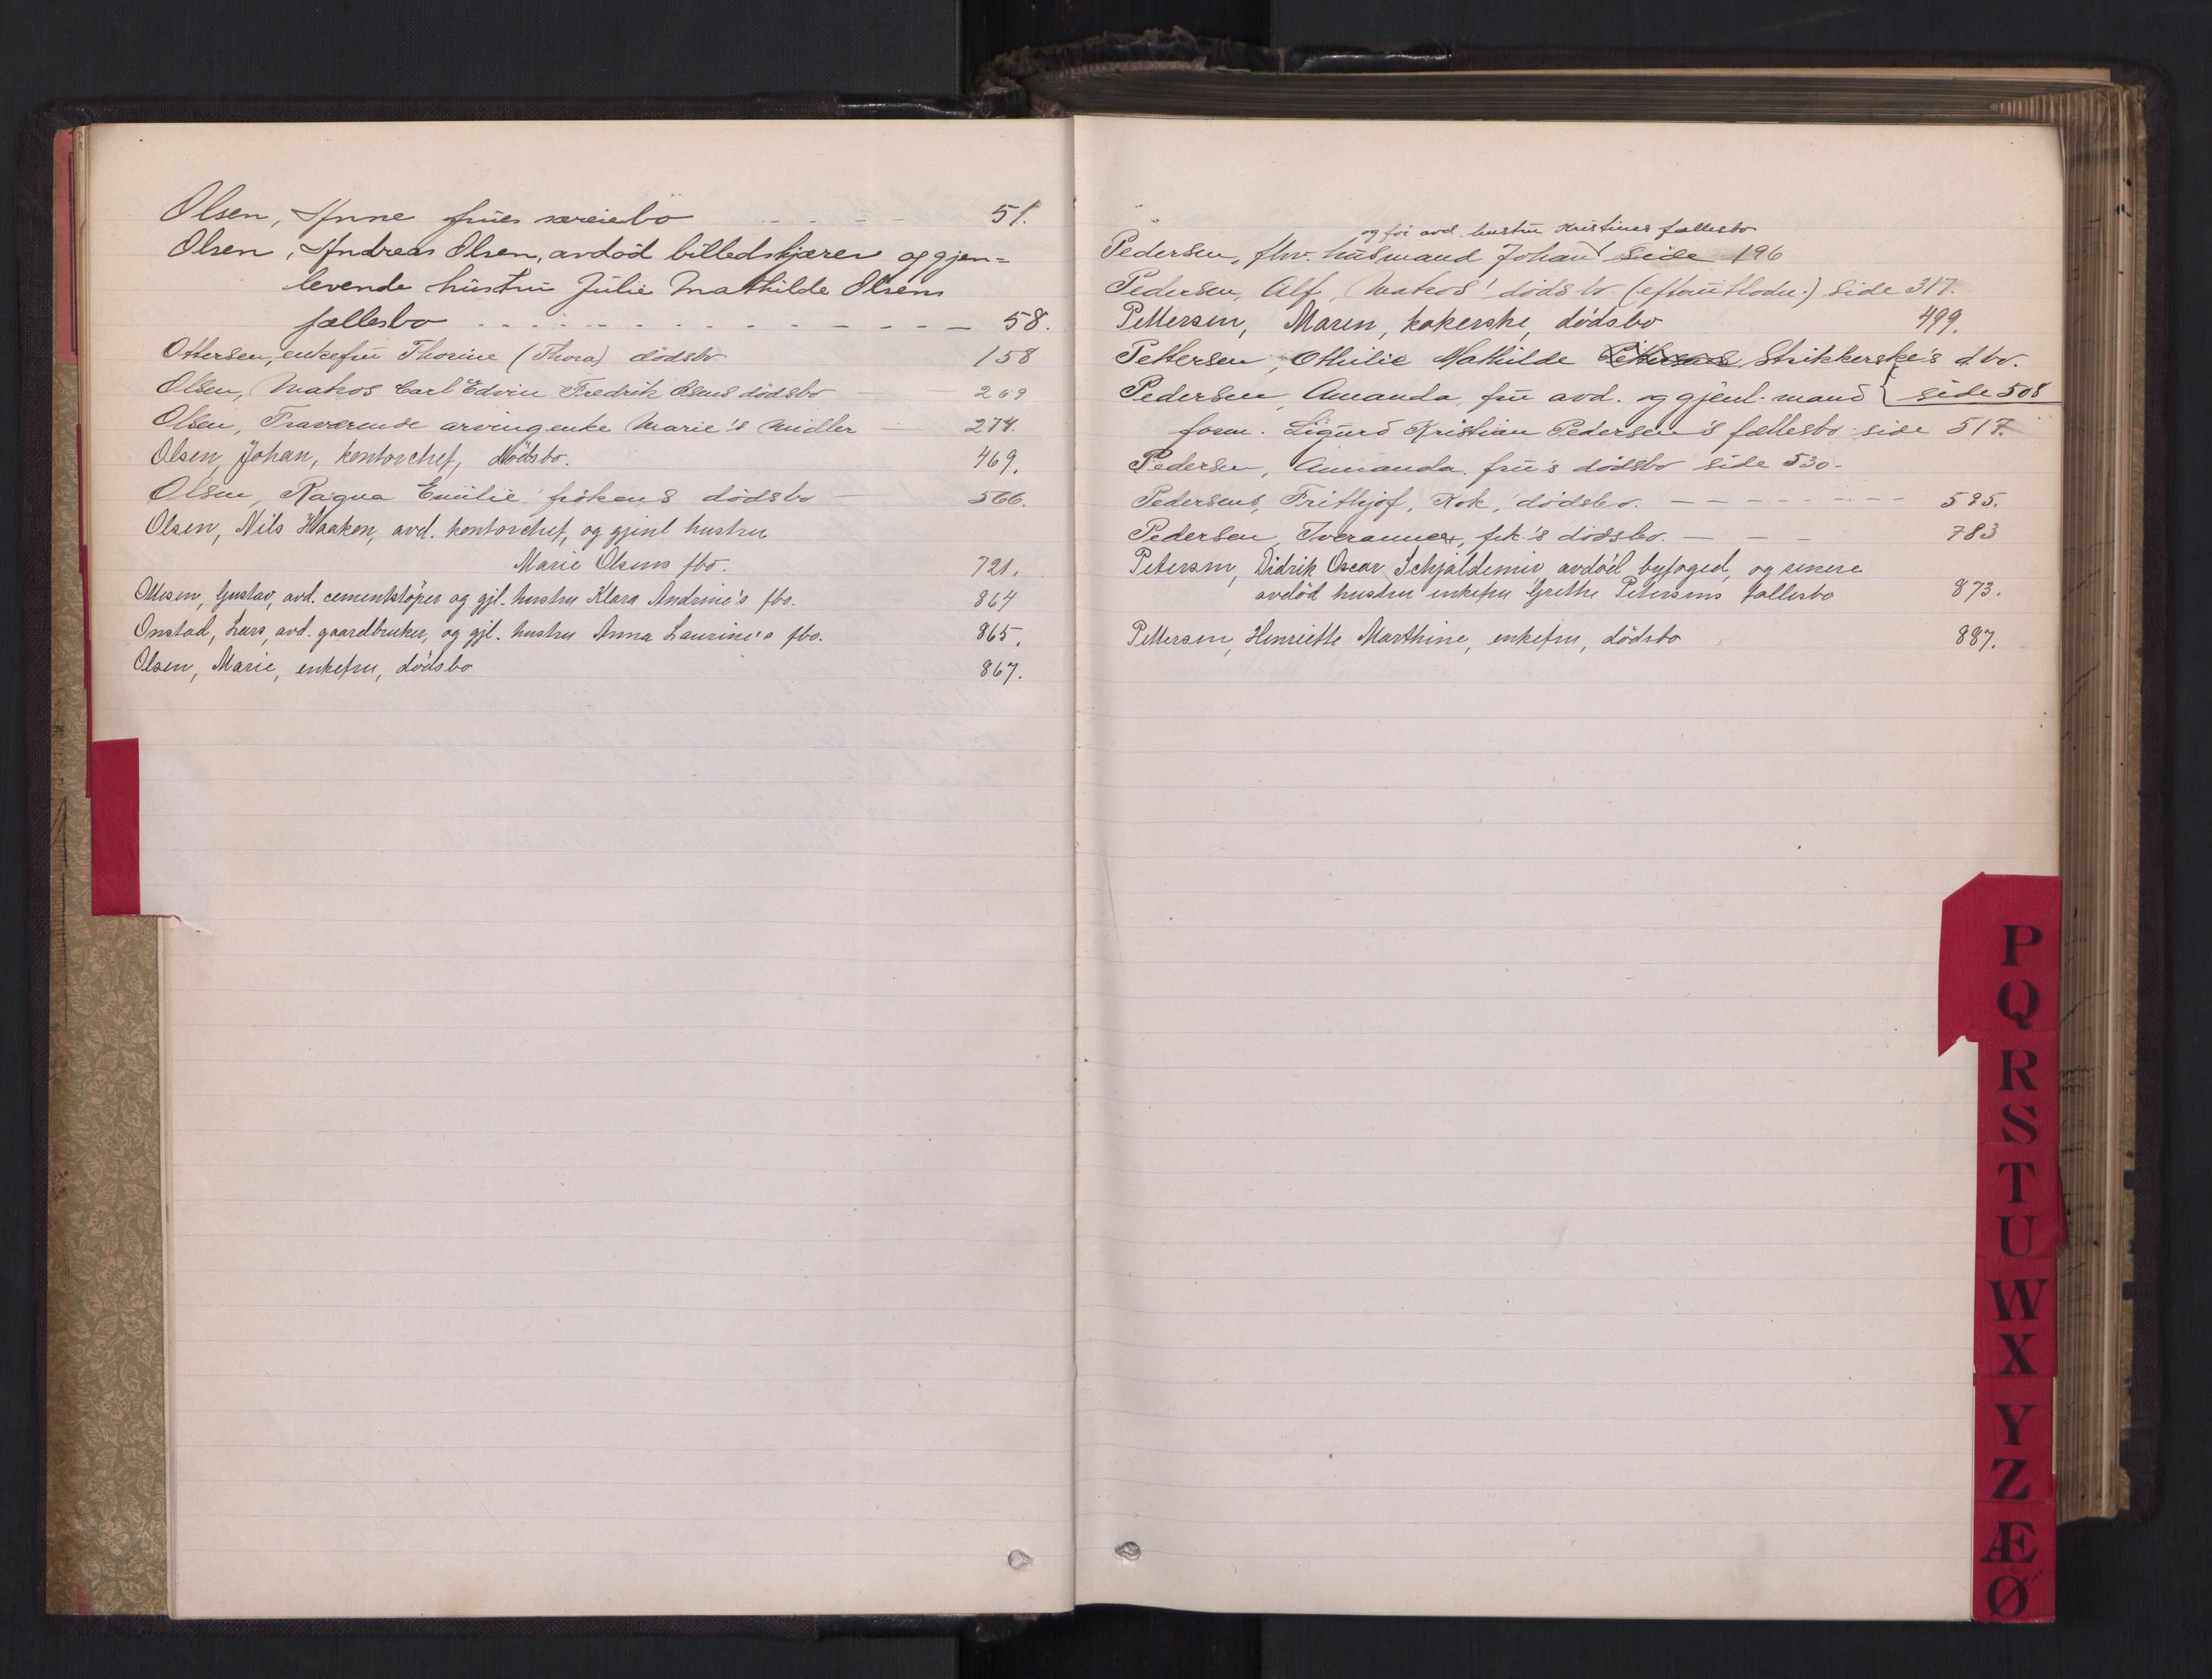 Olsen, Anne frues særeiebo - - - - 51.
Olsen, Andreas Olsen, avdöd billedskjærer og gjen=
levende hustru Julie Mathilde Olsens
fællesbo - - - - - - - - - - - - - 58.
Ottersen, enkefru Thorine (Thora) dödsbo 158
Olsen, Matros Carl Edvin Fredrik Olsens dödsbo - 269
Olsen, Fraværende arving enke Marie's Midler - 274.
Olsen, Johan, kontorchef, dödsbo. 469.
Olsen, Ragna Emilie frökens dödsbo - 566.
Olsen, Nils Haaken, avd. kontorchef, og gjenl hustru
Marie Olsens fbo. 721.
Ottesen, Gustav, avd. cementstöper og gjl. hustru Klara Andrine's fbo. 864
Onstad, Lars, avd. gaardbruker, og gjl. hustru Anna Laurine's fbo. 865.
Olsen, Marie, enkefru, dödsbo 867.
og för avd. hustru Kristines fællesbo
Pedersen, fhv. husmand Johan side 196
Pedersen, Alf, Matros' dödsbo (efterutlodn.) side 317.
Pettersen, Maren, kokerske, dödsbo 499.
Pettersen, Othilie Mathilde Pettersens Strikkerske's d.bo.
Pedersen, Amanda, fru avd. og gjenl. mand { side 508
form. Sigurd Kristian Pedersen's fællesbo side 517.
Pedersen, Amanda fru's dödsbo side 530.
Pedersens, Frithjof, Kok, dödsbo. - - - - - - - 595.
Pedersen, Iveranna, frk.'s dödsbo. - - - 783
Petersen, Didrik Oscar Schjaldemir, avdöd byfoged, og senere
avdöd hustru enkefru Grethe Petersens fællesbo 873.
Pettersen, Henriette Marthine, enkefru, dödsbo 887.
P
Q
R
S
T
U
W
X
Y
Z
Æ
Ø